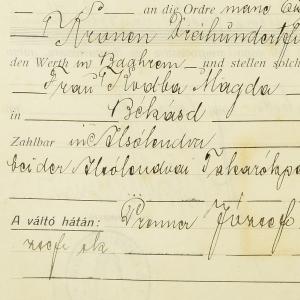 an die Ordre mane
Kronen Dreihundert
den Werth in Baahrem und stellen solch
Frau Kodba Magda
in Békásd
Zahlbar in Alsólendva
beider Alsólendvai Takarékp
A váltó hátán: Prenner József